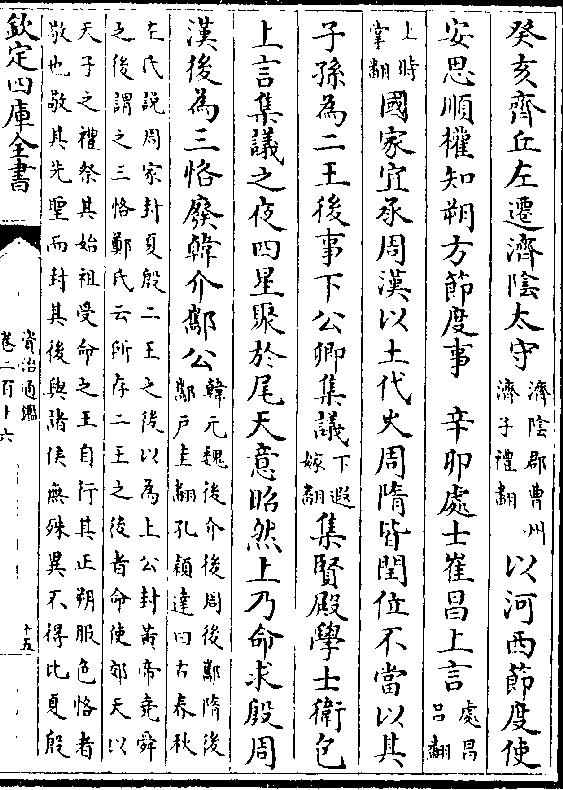 癸亥齊丘左遷濟陰太守濟陰郡曹州濟子禮翻以河西節度使
安思順權知朔方節度事　辛卯處士崔昌上言處昌呂翻
上時掌翻國家宜承周漢以土代火周隋皆閏位不當以其
子孫為二王後事下公卿集議下遐嫁翻集賢殿學士衛包
上言集議之夜四星聚於尾天意昭然上乃命求殷周
漢後為三恪廢韓介酅公韓元魏後介後周後酅隋後酅戶圭翻孔穎達曰古春秋
左氏説周家封夏殷二王之後以為上公封黃帝堯舜
之後謂之三恪鄭氏云所存二王之後者命使郊天以
天子之禮祭其始祖受命之王自行其正朔服色恪者
敬也敬其先聖而封其後與諸侯無殊異不得比夏殷
欽定四庫全書
資治通鑑
卷二百十六
十五